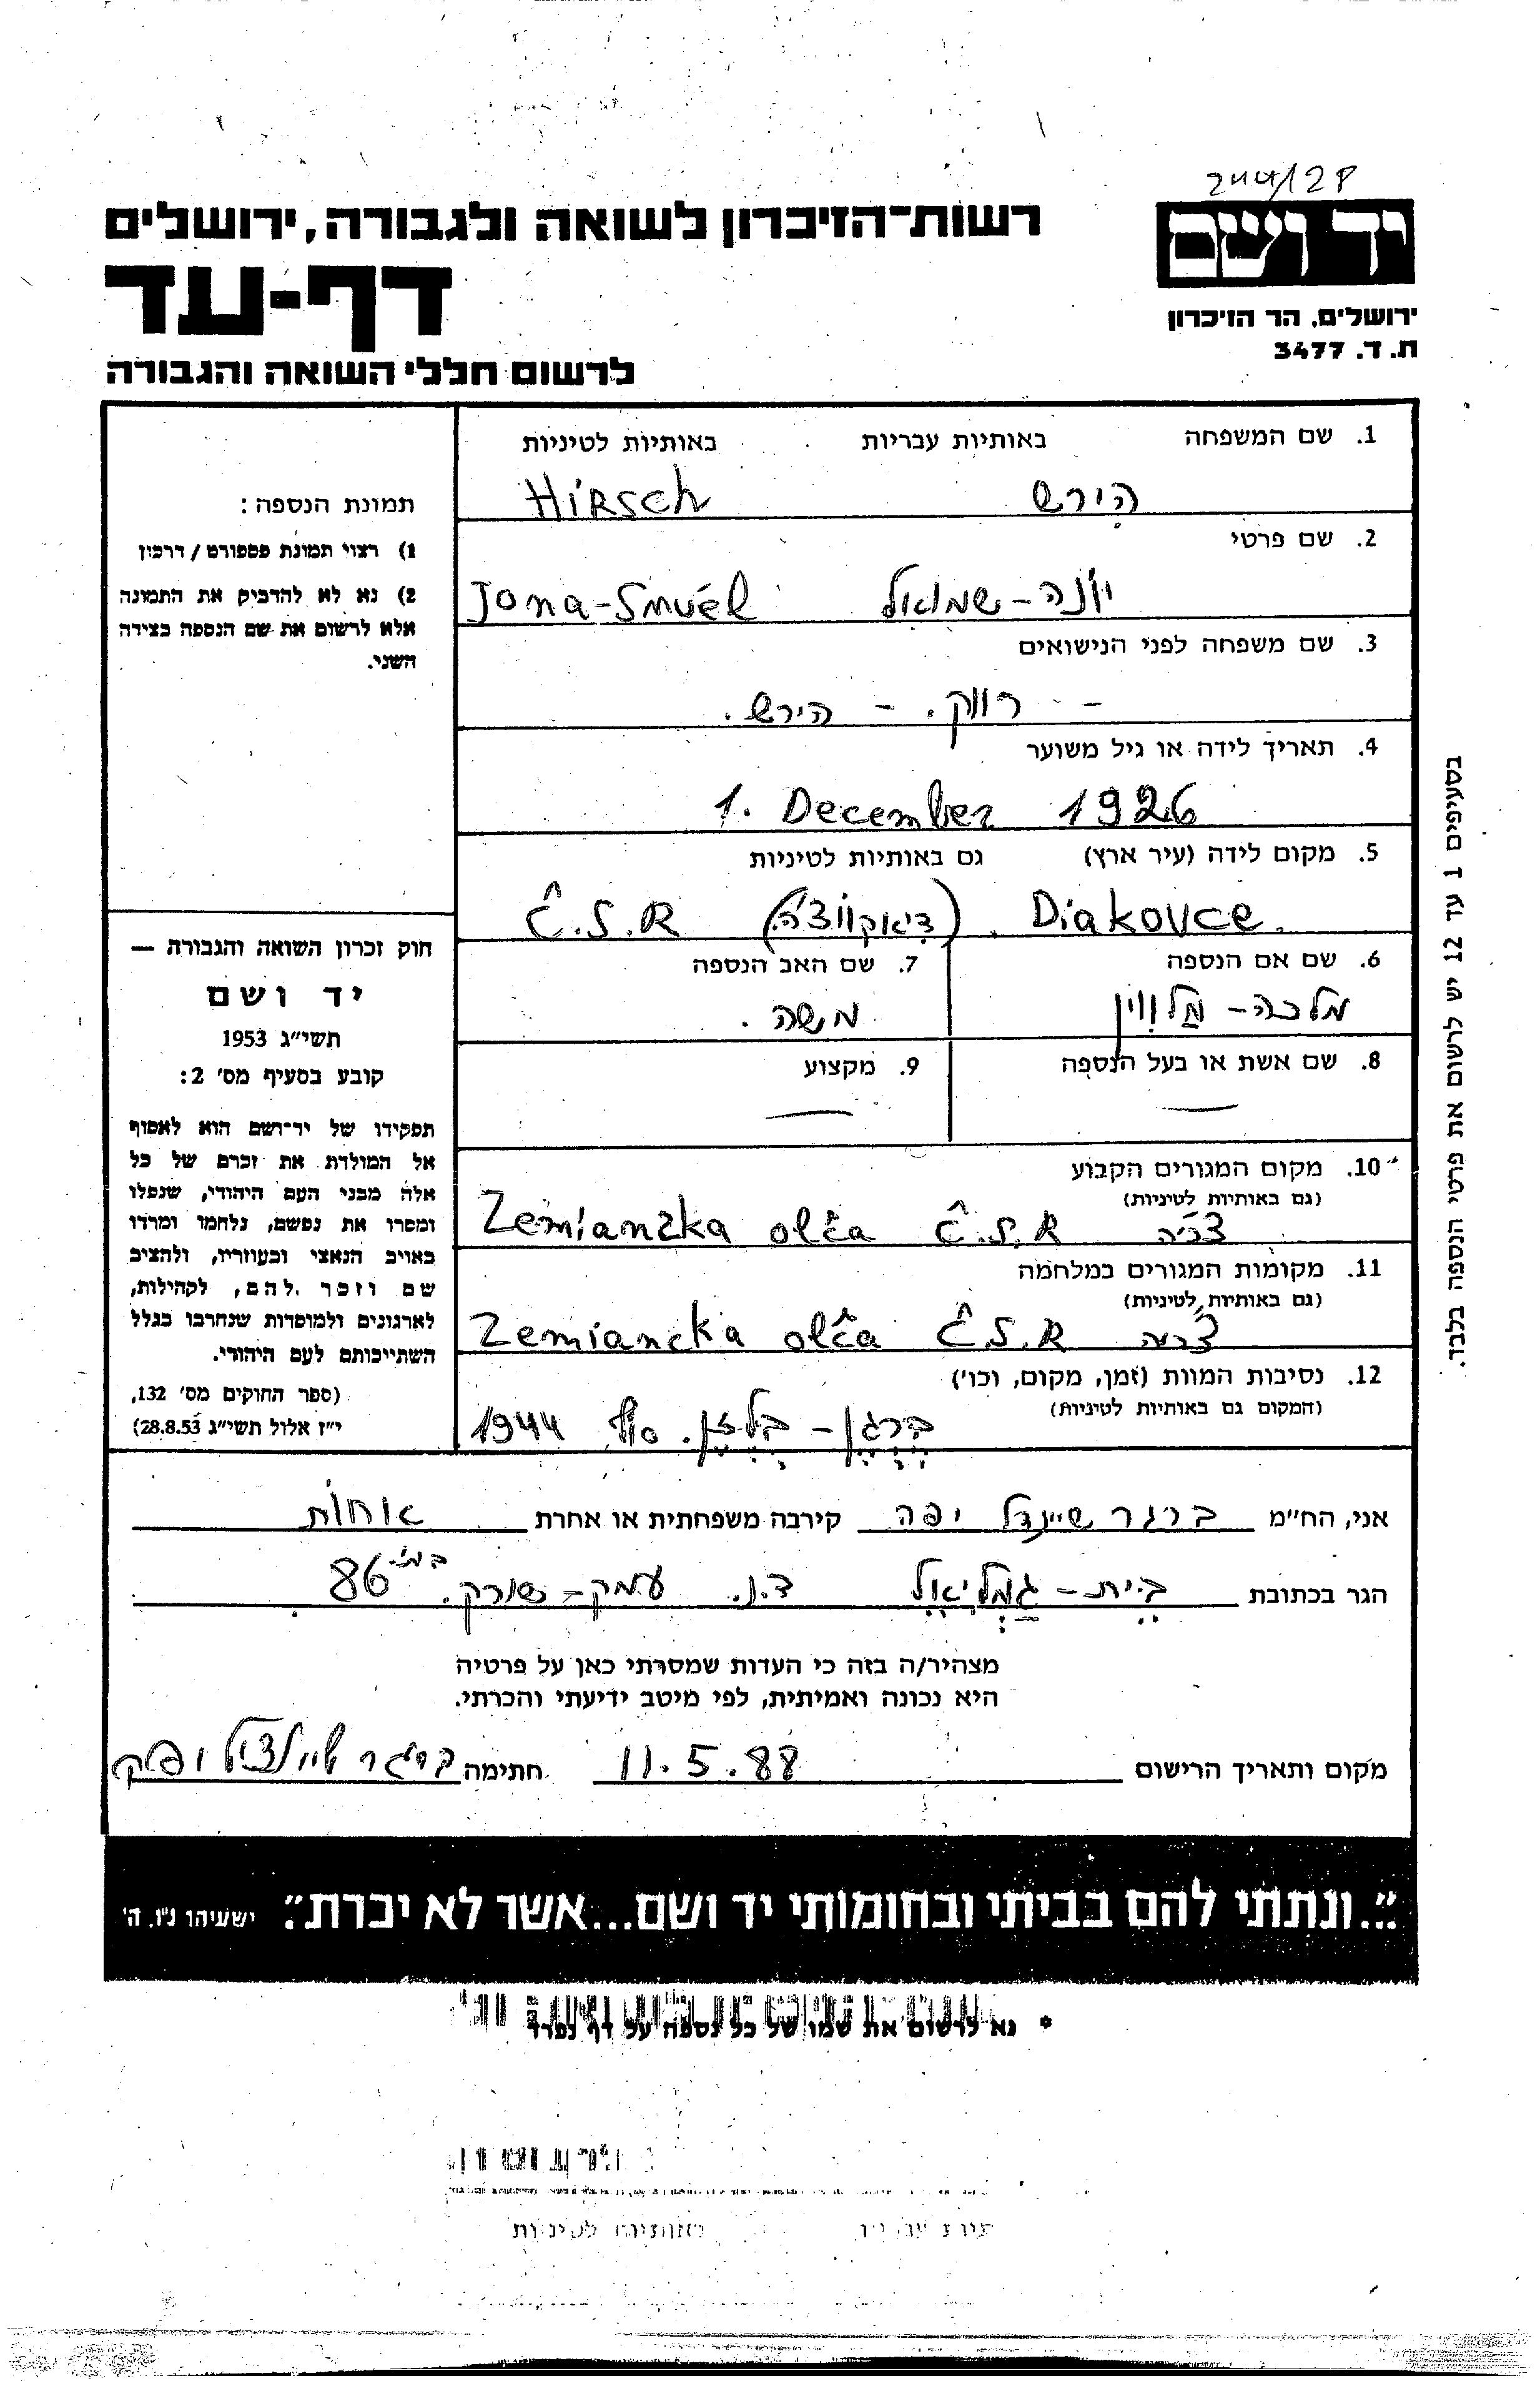 244/28
רשות-הזיכרון לשואה ולגבורה, ירושלים
יד ושם
דף-עד
ירושלים, הר הזיכרון
ת. ד. 3477
לרשום חללי השואה והגבורה
1. שם המשפחה באותיות עבריות באותיות לטיניות
הירש Hirsch
2. שם פרטי
יונה-שמואל Jona-Smuél
3. שם משפחה לפני הנישואים
- רווק. - הירש.
4. תאריך לידה או גיל משוער
1. December 1926
5. מקום לידה (עיר ארץ) גם באותיות לטיניות
Diakovce. (דיאקווצ'ה) Č.S.R
6. שם אם הנספה 7. שם האב הנספה
מלכה- מלווין משה.
8. שם אשת או בעל הנספה 9. מקצוע
— —
10. מקום המגורים הקבוע
(גם באותיות לטיניות)
Zemianzka olča Č.S.R צ'כיה
11. מקומות המגורים במלחמה
(גם באותיות לטיניות)
Zemiancka olča Č.S.R
12. נסיבות המוות (זמן, מקום, וכו')
(המקום גם באותיות לטיניות)
ברגן- בלזן. 1944
תמונת הנספה:
1) רצוי תמונת פספורט / דרכון
2) נא לא להדביק את התמונה
אלא לרשום את שם הנספה בצידה
השני.
חוק זכרון השואה והגבורה —
יד ושם
תשי"ג 1953
קובע בסעיף מס' 2:
תפקידו של יד-ושם הוא לאסוף
אל המולדת את זכרם של כל
אלה מבני העם היהודי, שנפלו
ומסרו את נפשם, נלחמו ומרדו
באויב הנאצי ובעוזריו, ולהציב
שם וזכר להם, לקהילות,
לארגונים ולמוסדות שנחרבו בגלל
השתייכותם לעם היהודי.
(ספר החוקים מס' 132,
י"ז אלול תשי"ג 28.8.53)
בסעיפים 1 עד 12 יש לרשום את פרטי הנספה בלבד.
אני, הח"מ ברגר שיינדל יפה קירבה משפחתית או אחרת אחות
הגר בכתובת בית-גמליאל ד.נ. עמק-שורק. 86
מצהיר/ה בזה כי העדות שמסרתי כאן על פרטיה
היא נכונה ואמיתית, לפי מיטב ידיעתי והכרתי.
מקום ותאריך הרישום 11.5.88 חתימה ברגר שיינדל יפה
"...ונתתי להם בביתי ובחומותי יד ושם...אשר לא יכרת". ישעיהו נ"ו, ה'
* נא לרשום את שמו של כל נספה על דף נפרד